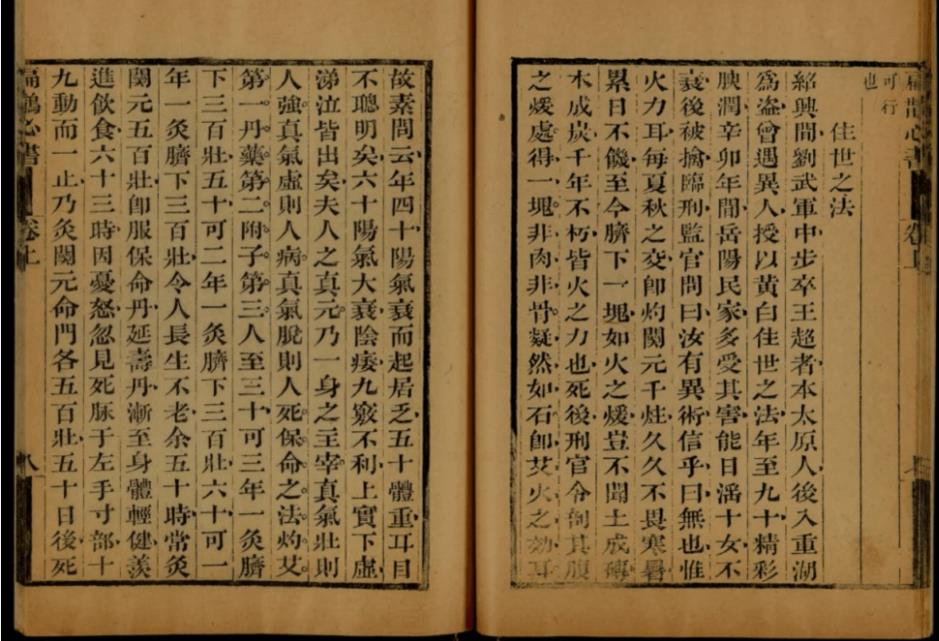 扁鵲心書
卷上
七
可行
也
住世之法
紹興間劉武軍中步卒王超者本太原人後入重湖
爲盗曾遇異人授以黄白住世之法年至九十精彩
腴潤辛卯年間岳陽民家多受其害能日滛十女不
衰後被擒臨刑監官問曰汝有異術信乎曰無也惟
火力耳每夏秋之交卽灼關元千炷久久不畏寒暑
累日不饑至今臍下一塊如火之煖豈不聞土成磚
木成炭千年不朽皆火之力也死後刑官令剖其腹
之煖處得一塊非肉非骨凝然如石卽艾火之効耳
故素問云年四十陽氣衰而起居乏五十體重耳目
不聰明矣六十陽氣大衰陰痿九竅不利上實下虛
涕泣皆出矣夫人之真元乃一身之主宰真氣壯則
人強真氣虛則人病真氣脫則人死保命之法灼艾
第一丹藥第二附子第三人至三十可三年一灸臍
下三百壯五十可二年一灸臍下三百壯六十可一
年一灸臍下三百壯令人長生不老余五十時常灸
關元五百壯卽服保命丹延壽丹漸至身體輕健羨
進飲食六十三時因憂怒忽見死脉于左手寸部十
九動而一止乃灸關元命門各五百壯五十日後死
扁鵲心書
卷上
八